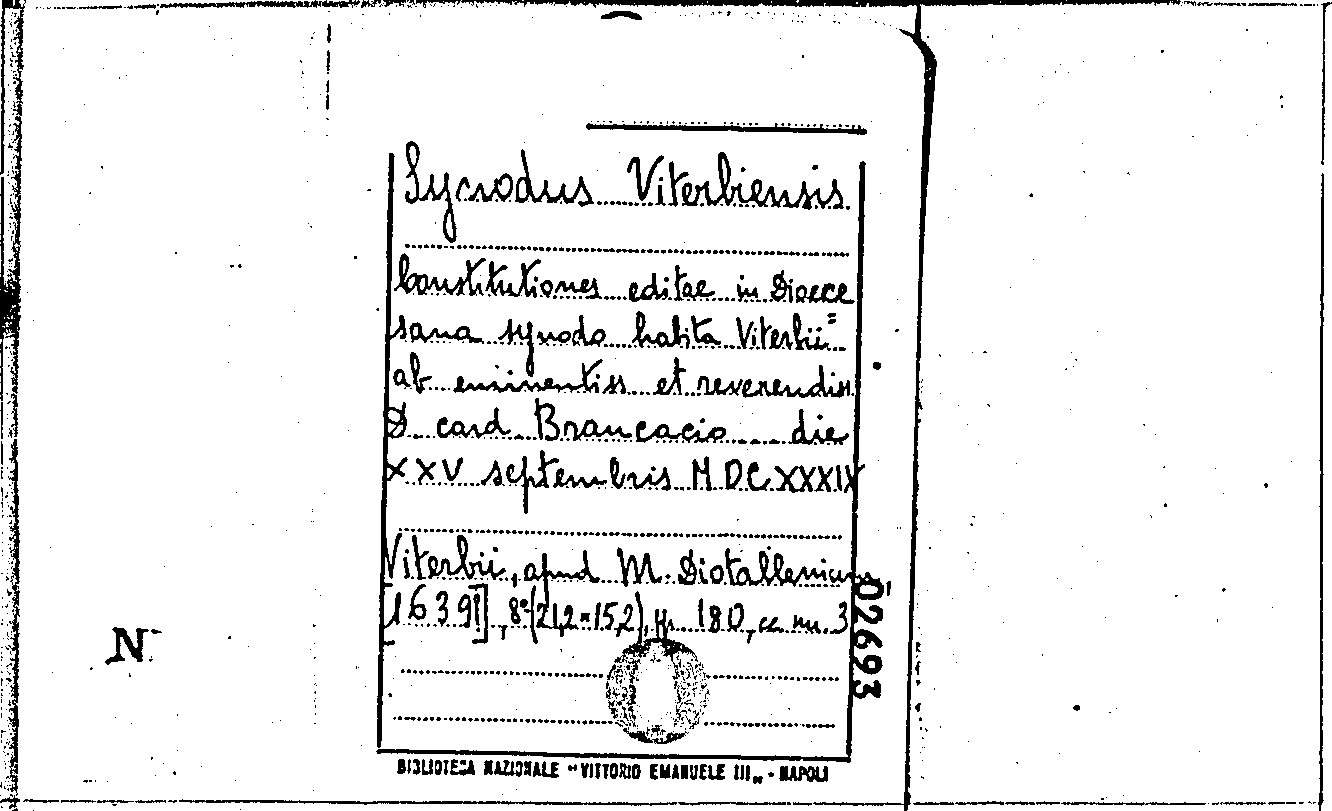 Synodus Viterbiensis
Constitutiones editae in Dioece
sana synodo habita Viterbii=
ab eminentiss et reverendiss
D. card. Brancacio die
XXV septembris MDCXXXIX
Viterbii, apud M. Diotallevium,
[1639!], 8°(21,2×15,2), pp. 180, cc nu. 3
02693
N
BIBLIOTECA NAZIONALE "VITTORIO EMANUELE III„ - NAPOLI